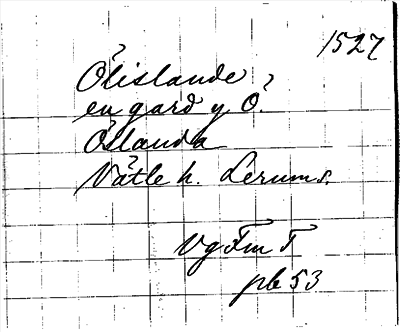 1527
Ölislande
en gard y Ö.
Östanda
Vätle h. Lerums s.
Vg Fm T
pb 53